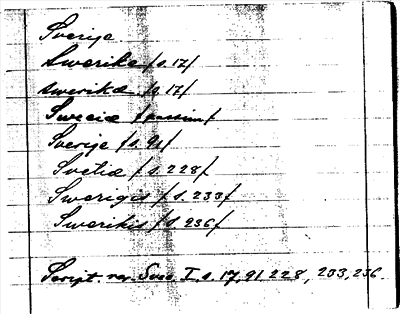 Sverije
Swerike /s. 17/
swerikæ /s. 17/
Sweciæ /passim/
Sverije /s. 91/
Svetia /s. 228/
Sweriges /s. 233/
Swerikis /s. 236/
Script. rer. Svec. I. s. 17, 91, 228, 233, 236.